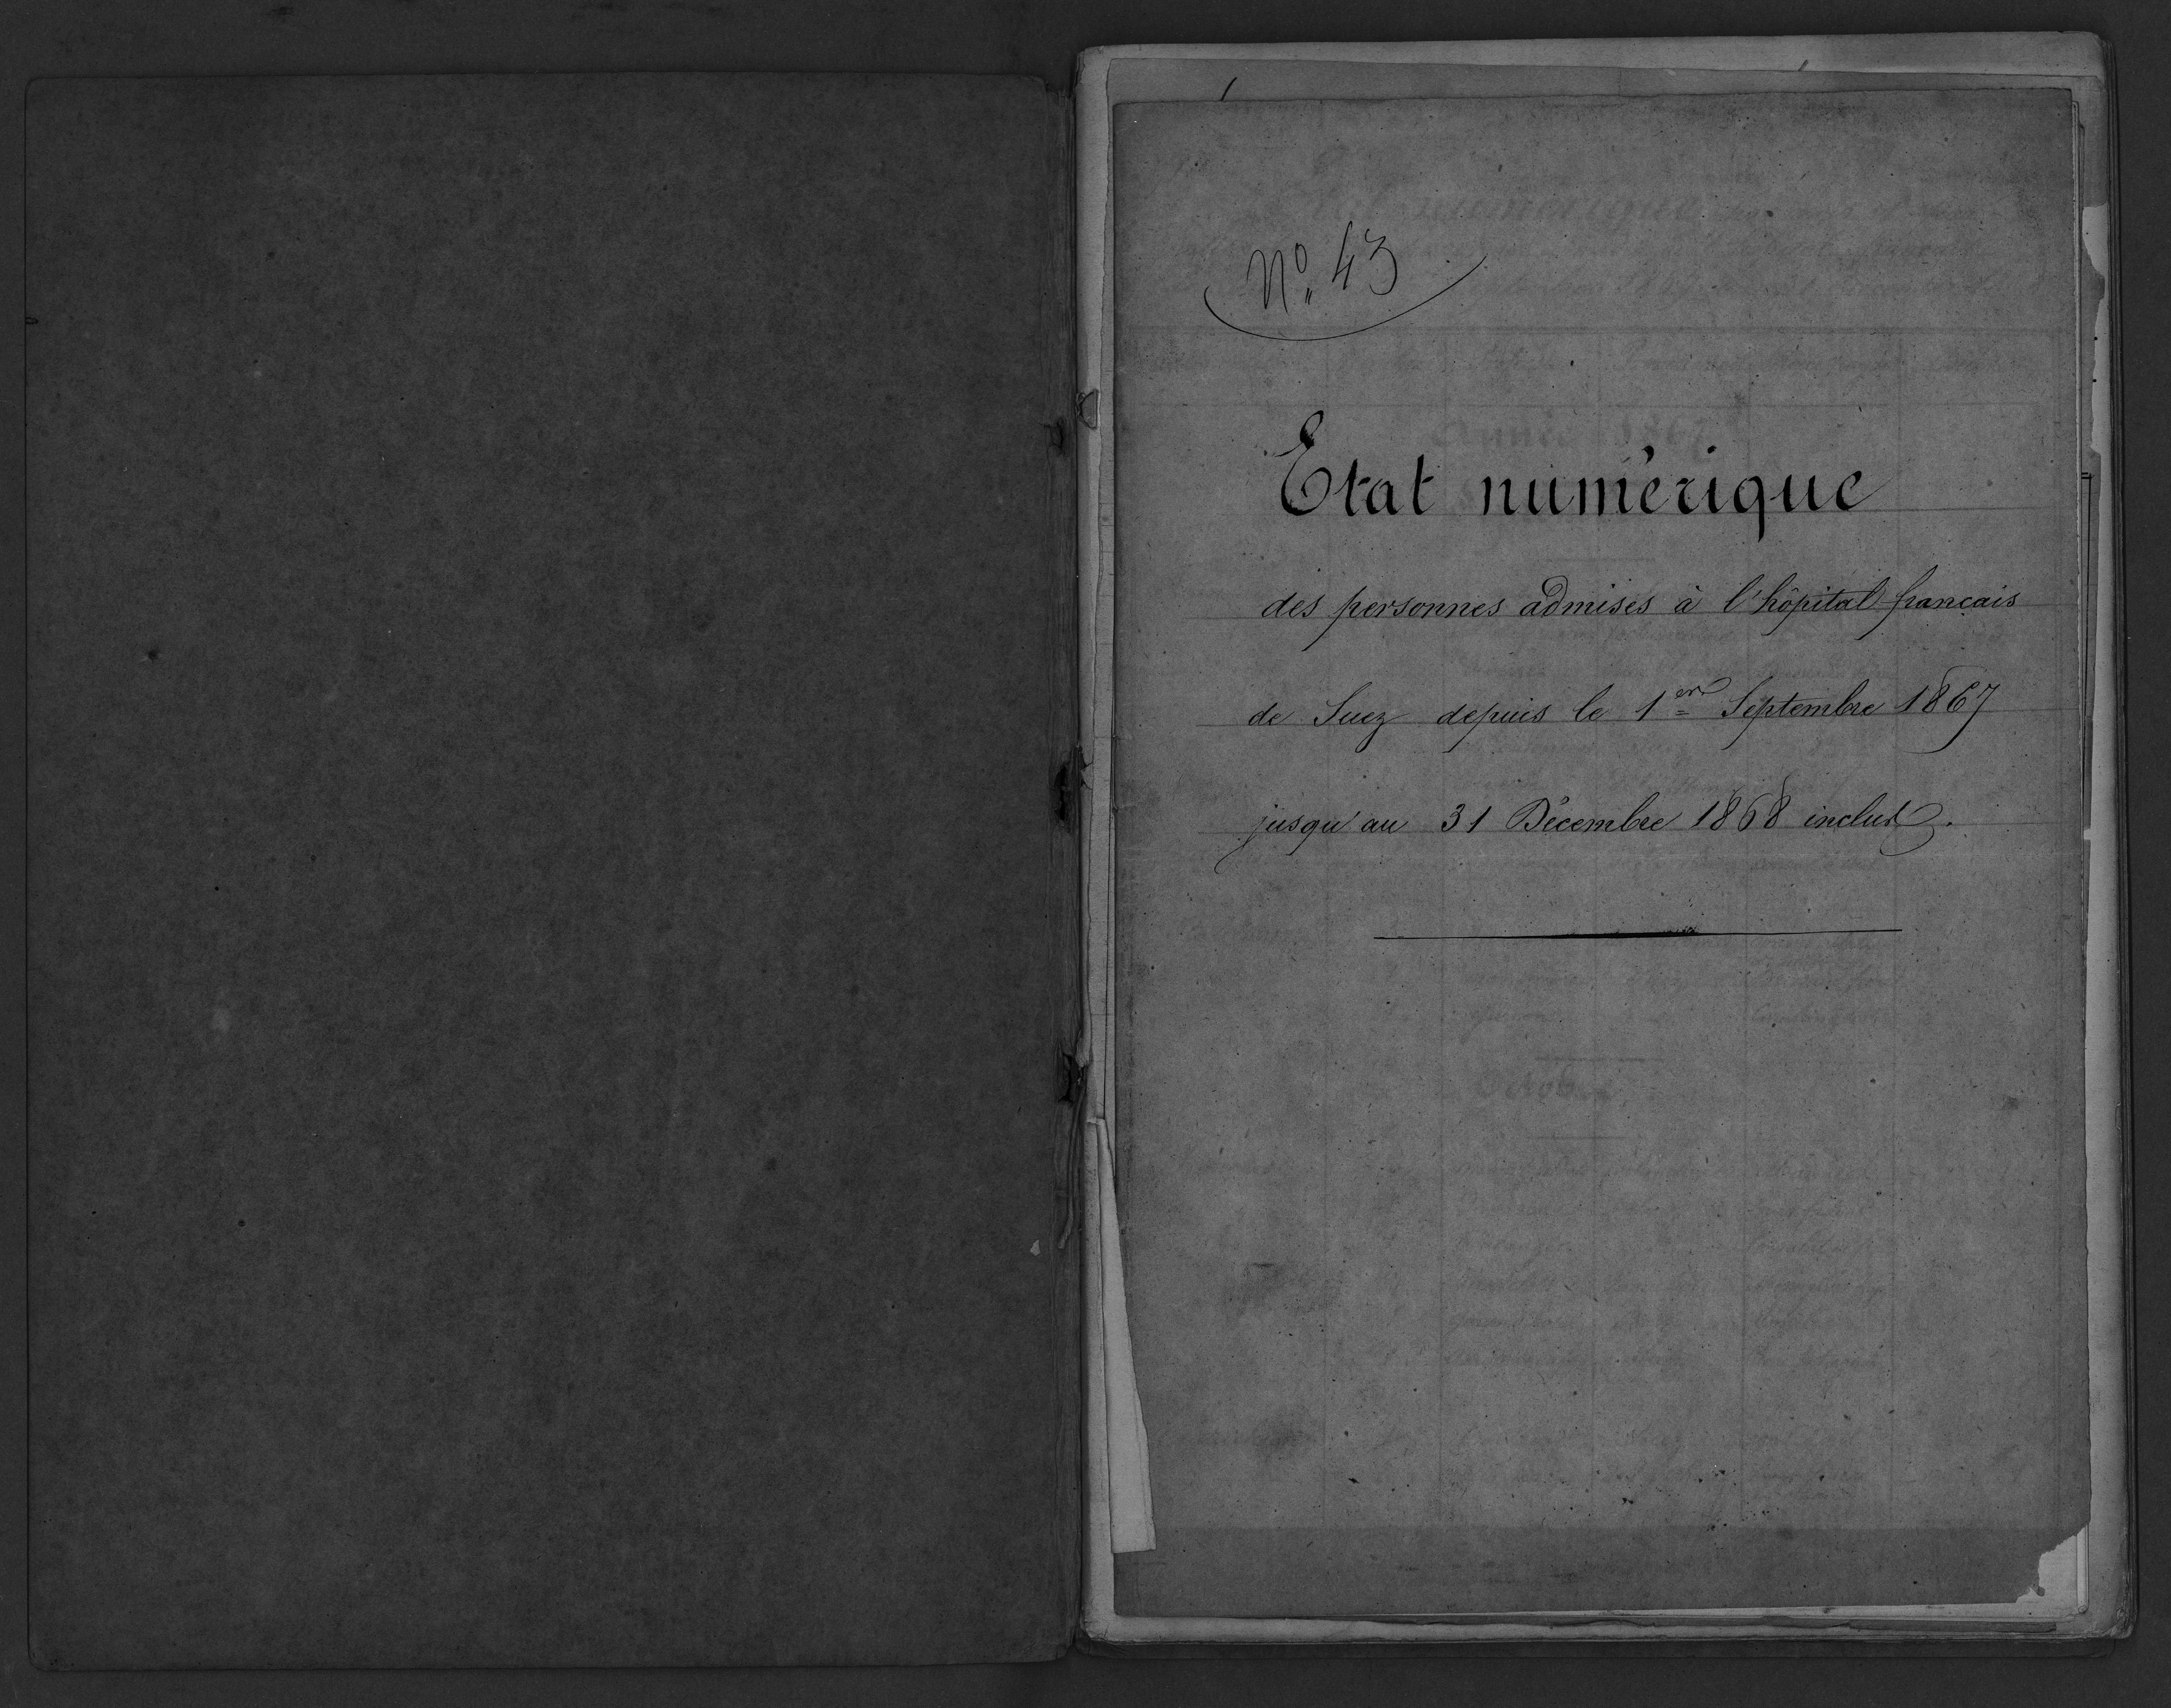 Nº 43
Etat numérique
des personnes admises à l'hôpital français
de Suez depuis le 1er Septembre 1867
jusqu'au 31 Décembre 1868 inclus.